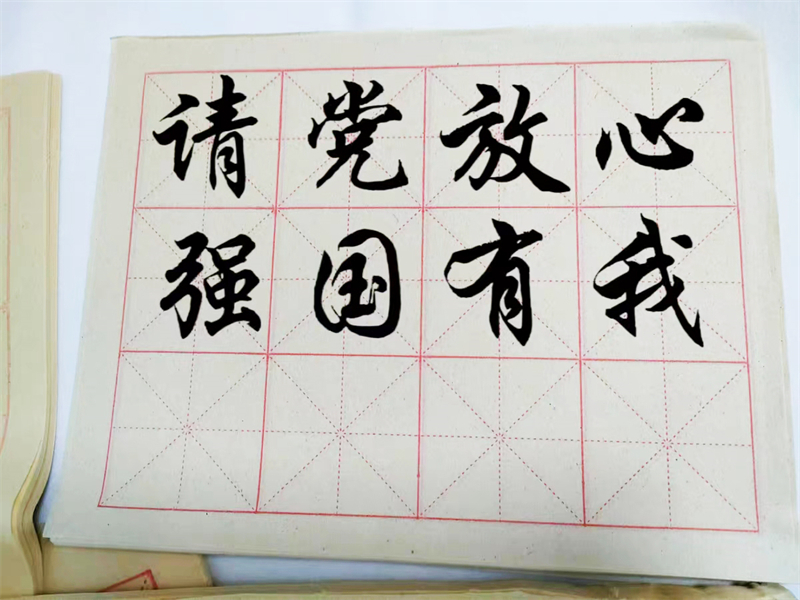 请党放心
强国有我